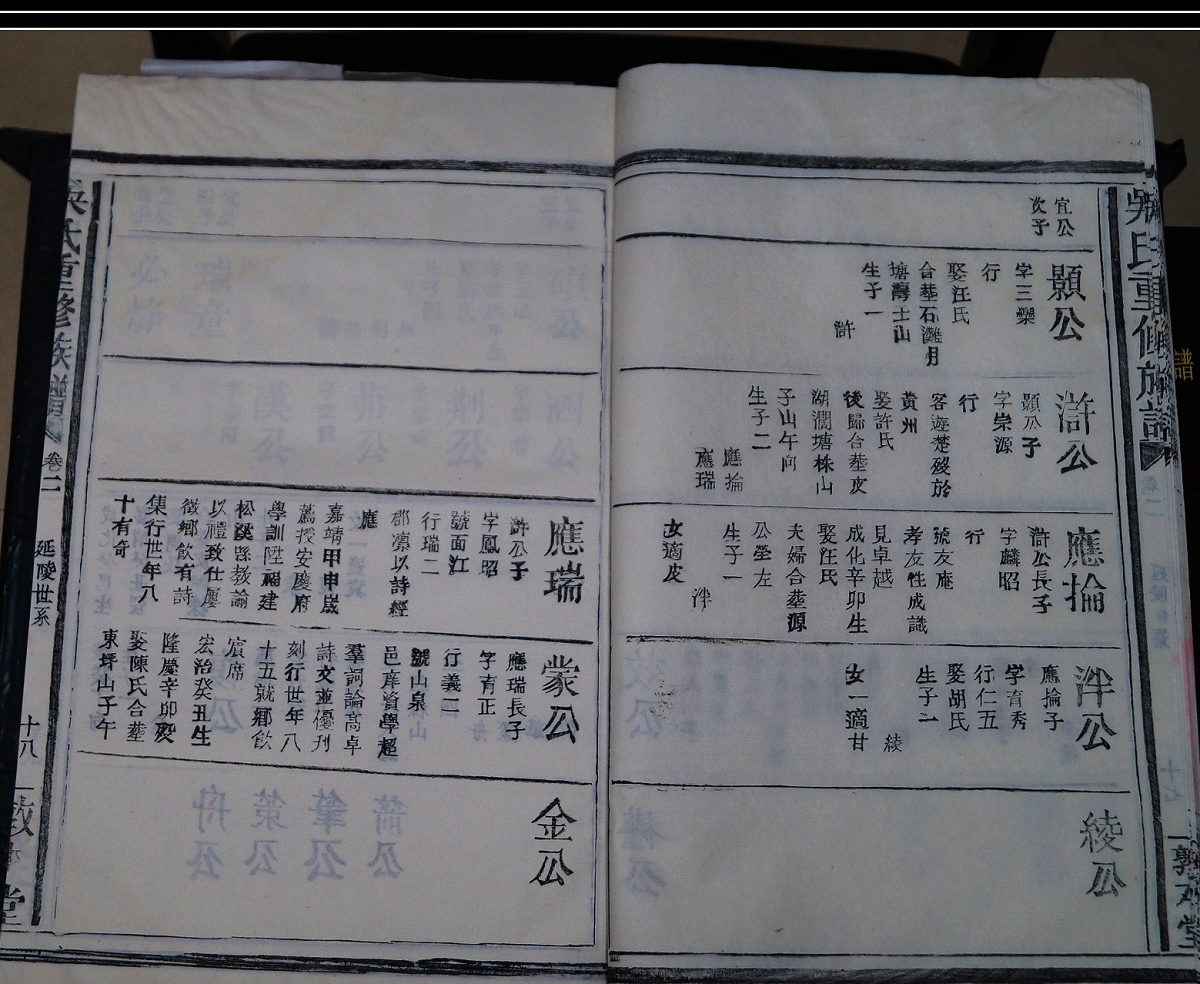 吳氏重修族譜
敦本堂
宜公
次子
顯公
字三樂
行
娶汪氏
合塟石灘月
塘灣土山
生子一
滸
滸公
顯公子
字崇源
行
客遊楚歿於
黃州
娶許氏
後歸合塟皮
湖瀾塘株山
子山午向
生子二
應掄
應瑞
應掄
滸公長子
字麟昭
行
號友庵
孝友性成識
見卓越
成化辛卯生
娶汪氏
夫婦合塟源
公塋左
生子一
泮
女適皮
泮公
應掄子
字育秀
行仁五
娶胡氏
生子一
綾
女一適甘
綾公
應瑞
滸公子
字鳳昭
號面江
行瑞二
郡凛以詩經
應
嘉靖甲申嵗
薦授安慶府
學訓陞福建
松溪縣教諭
以禮致仕屢
徵鄉飲有詩
集行世年八
十有奇
蒙公
應瑞長子
字育正
行義二
號山泉
邑庠資學超
羣詞論高卓
詩文並優刋
刻行世年八
十五就鄉飲
賔席
宏治癸丑生
隆慶辛卯歿
娶陳氏合塟
東坪山子午
金公
吳氏重修族譜
卷二
延陵世系
十八
堂
譜